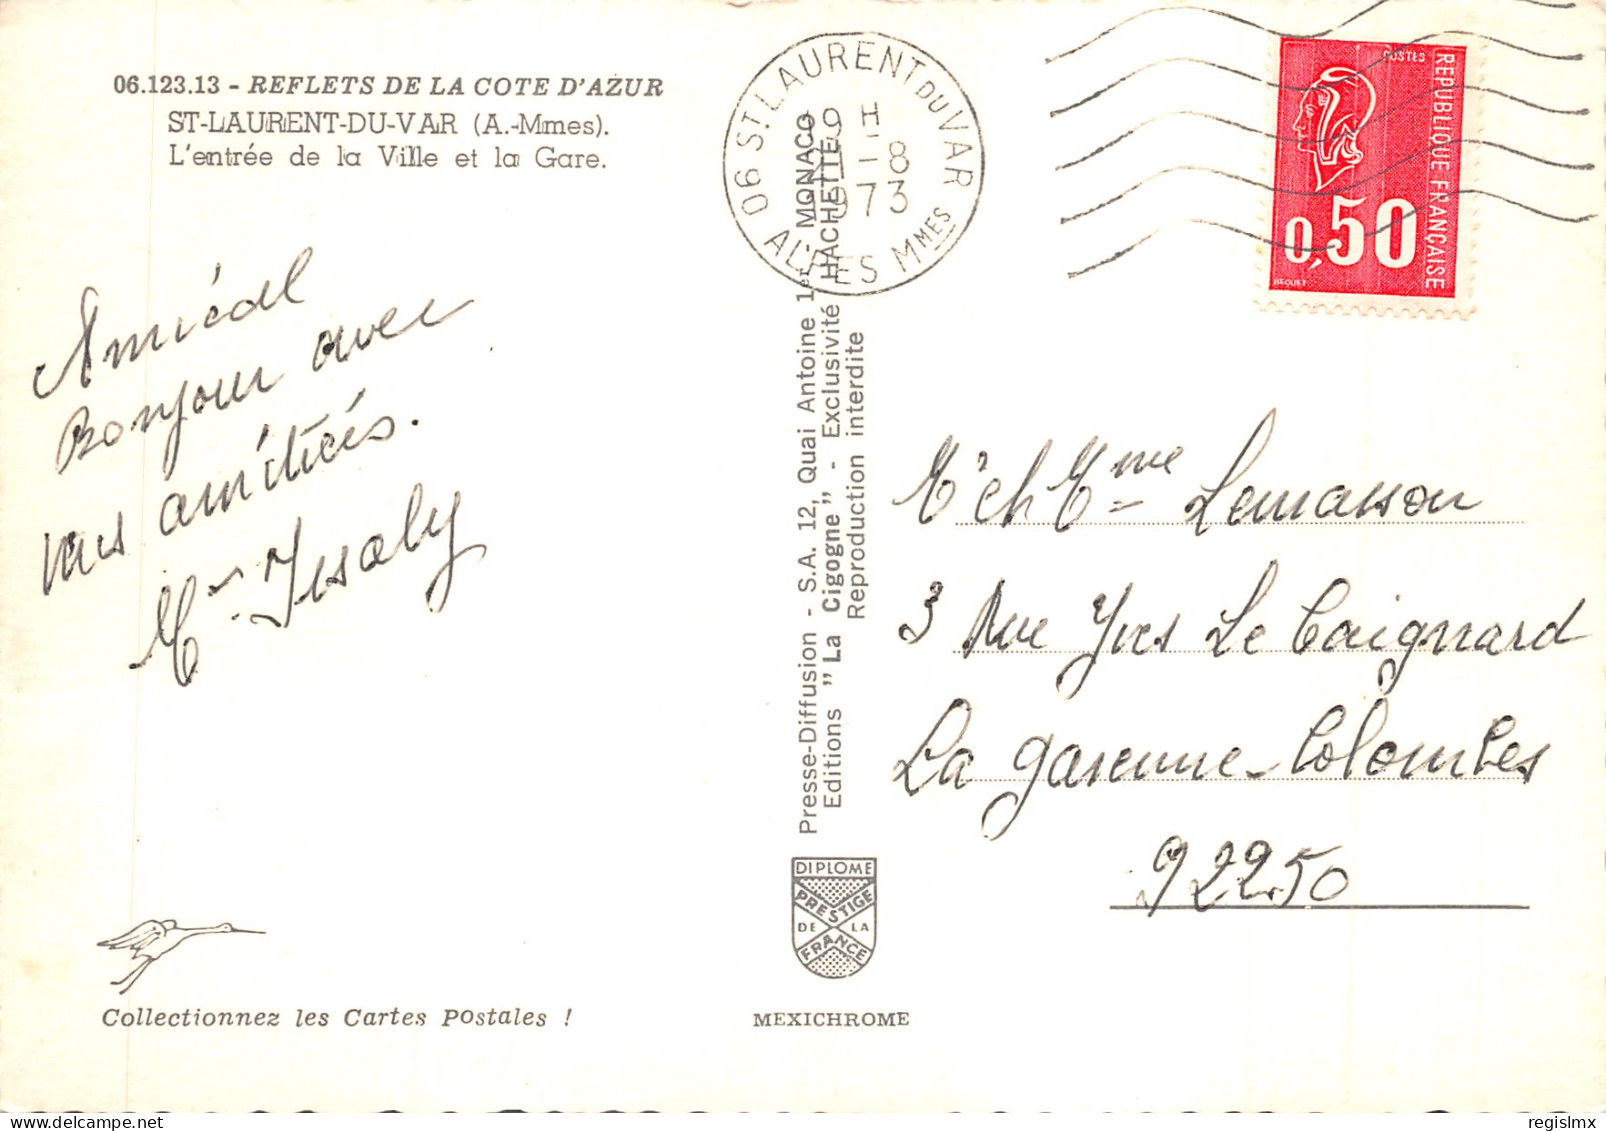 06.123.13 - REFLETS DE LA COTE D'AZUR
ST-LAURENT-DU-VAR (A.-Mmes).
L'entrée de la Ville et la Gare.
Amical
Bonjour avec
mes amitiés.
Mr Issaly
Collectionnez les Cartes Postales !
Presse-Diffusion - S.A. 12, Quai Antoine 1er - MONACO
Editions "La Cigogne" - Exclusivité HACHETTE
Reproduction interdite
DIPLOME
PRESTIGE
DE LA
FRANCE
MEXICHROME
06 ST LAURENT DU VAR
H
-8
1973
ALPES MMES
POSTES
REPUBLIQUE FRANÇAISE
0,50
BEQUET
M et Mme Lemasson
3 Rue Yves Le Caignard
La Garenne-Colombes
92250
regislmx
Delcampe.net